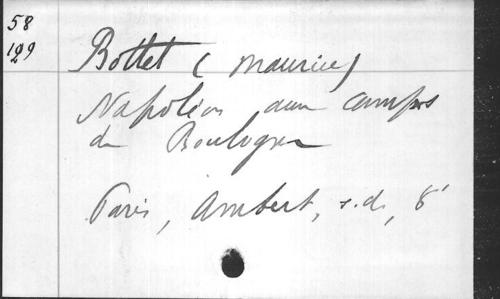 58
129
2
Bottet (Maurice)
Napoléon aux camps
de Boulogne
Paris, Ambert, s.d., 8°